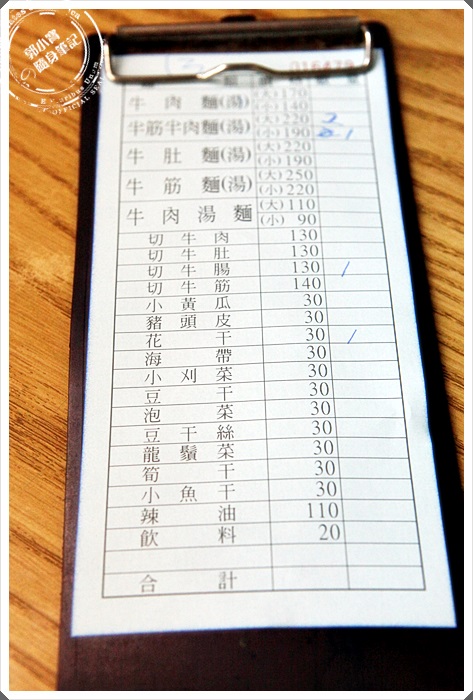 郭小寶
の隨身筆記
OFFICIAL SEAL
13
016479
牛肉麵(湯) (大) 170
(小) 140
半筋半肉麵(湯) (大) 220 2
(小) 190 1
牛肚麵(湯) (大) 220
(小) 190
牛筋麵(湯) (大) 250
(小) 220
牛肉湯麵 (大) 110
(小) 90
切牛肉 130
切牛肚 130
切牛腸 130 /
切牛筋 140
小黃瓜 30
豬頭皮 30
花干 30 /
海帶 30
小刈菜 30
豆干 30
泡菜 30
豆干絲 30
龍鬚菜 30
筍干 30
小魚干 30
辣油 110
飲料 20
合計